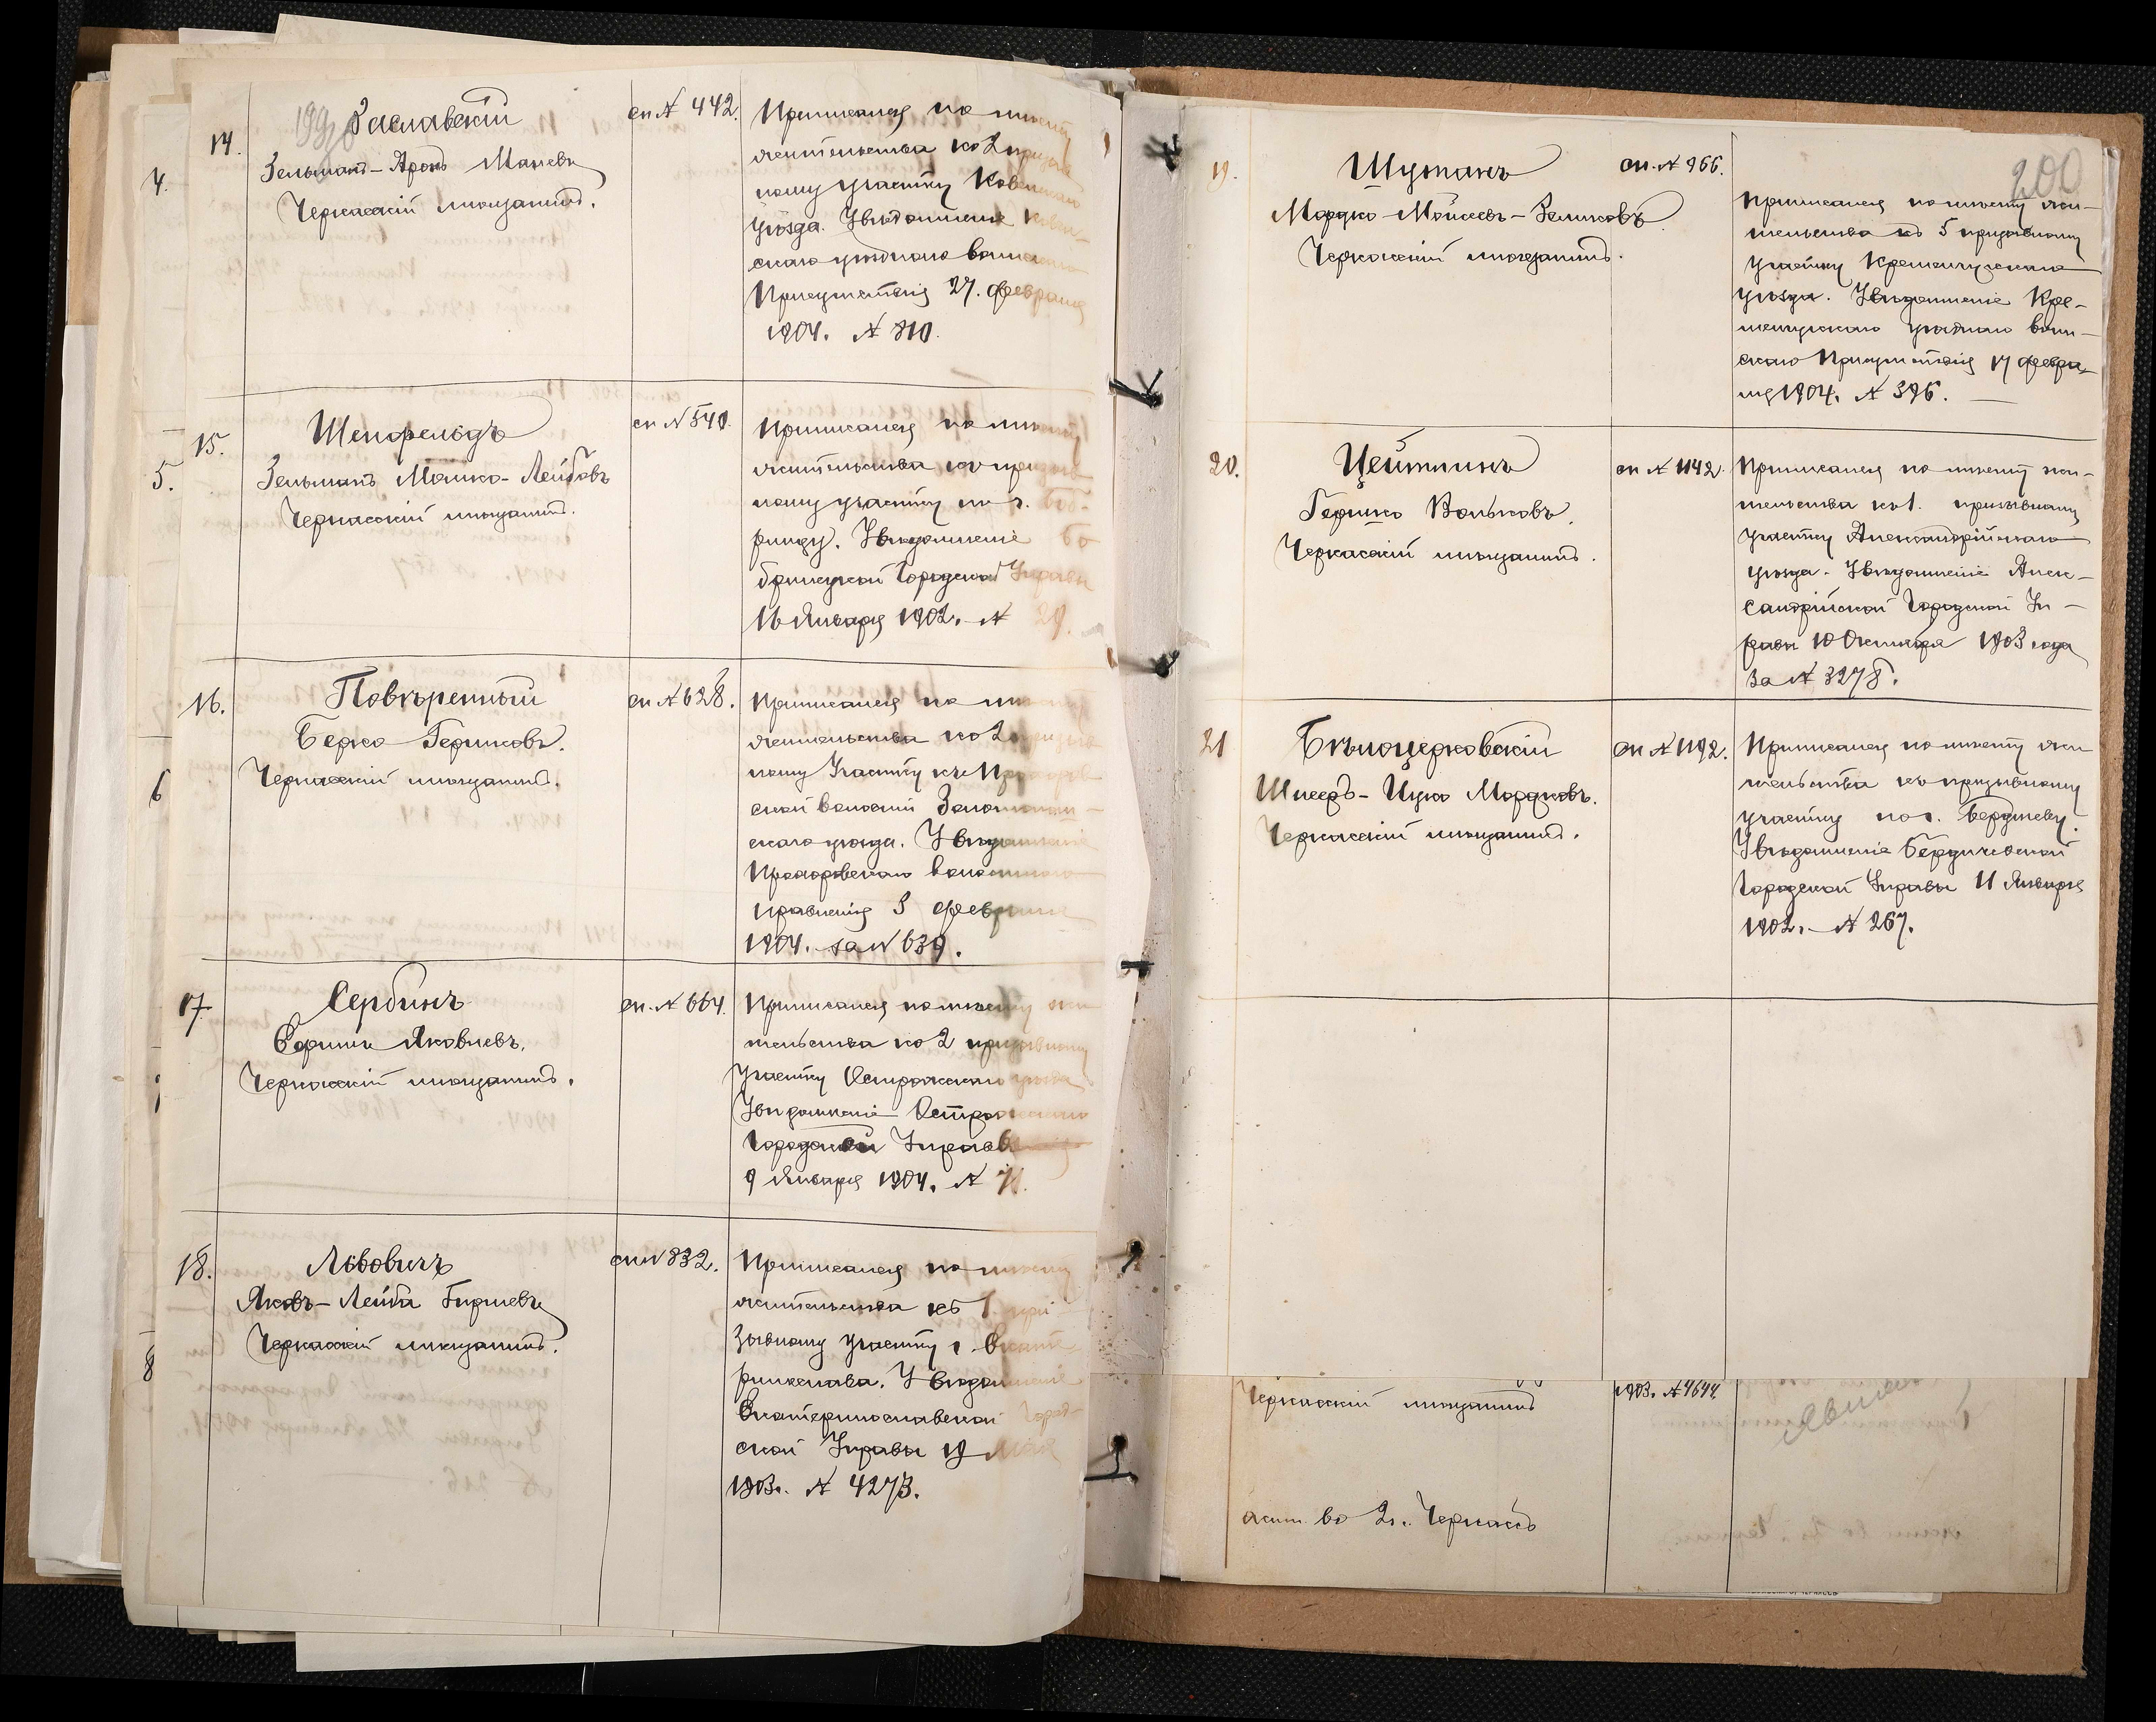 199
4.
14.
Заславскій
Зельманъ-Аронъ Маневъ
Черкасскій мѣщанинъ.
сп № 442.
Приписался по мѣсту
жительства ко 2 призыв
ному участку Ковенскаго
уѣзда. Увѣдомленіе Ковен-
скаго уѣзднаго воинскаго
Присутствія 27. февраля
1904. № 810.
5.
15.
Шенфельдъ
Зельманъ Мошко-Лейбовъ
Черкасскій мѣщанинъ.
сп № 540.
Приписался по мѣсту
жительства къ призыв
ному участку по г. Боб-
ринцу. Увѣдомленіе Бо
бринецкой Городской Управы
16 Января 1902. № 29.
6
16.
Повѣренный
Берко Гершковъ.
Черкасскій мѣщанинъ.
сп № 628.
Приписался по мѣсту
жительства ко 2 призыв
ному участку къ Прохоров
ской волости Золотонош-
скаго уѣзда. Увѣдомленіе
Прохоровскаго волостнаго
правленія 3 февраля
1904. за № 639.
17.
Сербинъ
Яковлевъ.
Черкасскій мѣщанинъ.
сп. № 664.
Приписался по мѣсту жи
тельства ко 2 призывному
участку Острожскаго уѣзда
Увѣдомленіе Острожской
Городской Управы
9 Января 1904. № 71.
8
18.
Львовичъ
Яковъ-Лейба Гиршевъ
Черкасскій мѣщанинъ.
сп № 832.
Приписался по мѣсту
жительства къ 1. при
зывному участку г. Екате
ринослава. Увѣдомленіе
Екатеринославской Город-
ской Управы 19 Мая
1903. № 4273.
200
19.
Шуманъ
Мордко-Мойсеевъ-Зелиховъ
Черкасскій мѣщанинъ.
сп. № 966.
Приписался по мѣсту жи-
тельства къ 5 призывному
участку Кременчугскаго
уѣзда. Увѣдомленіе Кре-
менчугскаго уѣзднаго воин-
скаго Присутствія 17 февра-
ля 1904. № 396.
20.
Цейтлинъ
Гершко Вольковъ.
Черкасскій мѣщанинъ.
сп № 1142.
Приписался по мѣсту жи-
тельства ко 1. призывному
участку Александрійскаго
уѣзда. Увѣдомленіе Алек-
сандрійской Городской Уп-
равы 10 Октября 1903 года
за № 3278.
21
Бѣлоцерковскій
Шлёмъ-Ицко Мордковъ.
Черкасскій мѣщанинъ.
сп № 1192.
Приписался по мѣсту жи
тельства къ призывному
участку по г. Бердичеву.
Увѣдомленіе Бердичевской
Городской Управы 11 Января
1902. № 267.
Черкасскій мѣщанинъ
1903. № 4644.
жит. въ г. Черкассъ